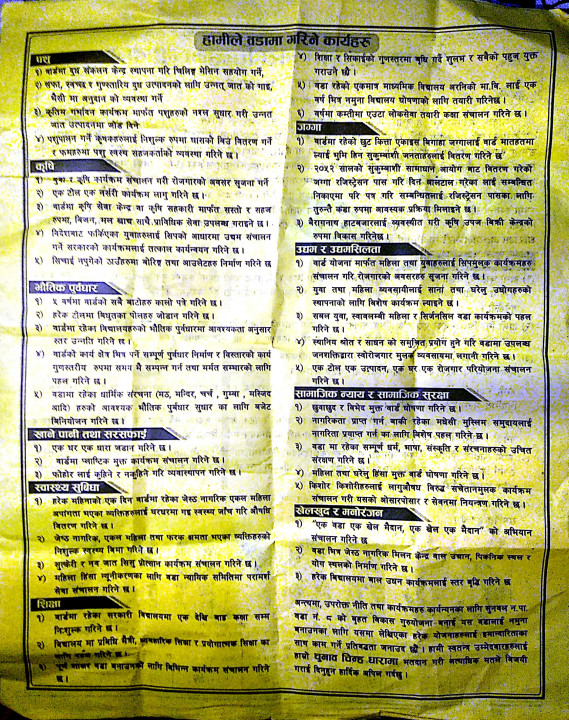 हामीले वडामा गरिने कार्यहरू
पशु
१) वार्डमा दुध संकलन केन्द्र स्थापना गरि चिलिङ्ग मेशिन सहयोग गर्ने,
२) सफा, स्वच्छ र गुणस्तरिय दुध उत्पादनको लागि उन्नत् जात को गाई,
भैसी मा अनुदान को व्यवस्था गर्ने
३) कृतिम गर्भाधन कार्यक्रम मार्फत पशुहरुको नश्ल सुधार गरी उन्नत
जात उत्पादनमा जोड दिने
४) पशुपालन गर्ने कृषकहरुलाई निशुल्क रुपमा घासको बिउ वितरण गर्ने
र फर्महरुमा पशु स्वस्थ सहजकर्ताको व्यवस्था गरिने छ।
कृषि
१) युवा र कृषि कार्यक्रम संचालन गरी रोजगारको अवसर सृजना गर्ने
२) एक टोल एक नर्सरी कार्यक्रम लागु गरिने छ।
३) वार्डमा कृषि सेवा केन्द्र वा कृषि सहकारी मार्फत सस्तो र सहज
रुपमा, बिजन, मल खाद्य साथै प्राविधिक सेवा उपलब्ध गराइने छ।
४) विदेशबाट फर्किएका युवाहरुलाई सिपको आधारमा उद्यम संचालन
गर्ने सरकारको कार्यक्रमलाई तत्काल कार्यन्वयन गरिने छ।
५) सिंचाई नपुगेको ठाउँहरुमा बोरिङ तथा आउलेटहरु निर्माण गरिने छ
भौतिक पुर्वधार
१) ५ वर्षमा वार्डको सबै बाटोहरु कालो पत्रे गरिने छ।
२) हरेक टोलमा विधुतका पोलहरु जोडान गरिने छ।
३) वार्डमा रहेका विद्यालयहरुको भौतिक पुर्वधारमा आवश्यकता अनुसार
स्तर उन्नति गरिने छ।
४) वार्डको कार्य क्षेत्र भित्र पर्ने सम्पूर्ण पुर्वधार निर्माण र बिस्तारको कार्य
गुणस्तरीय रुपमा समय मै सम्पन्न गर्न तथा मर्मत सम्भारको लागि
पहल गरिने छ।
५) वडामा रहेका धार्मिक संरचना (मठ, मन्दिर, चर्च, गुम्बा, मस्जिद
आदि) हरुको आवश्यक भौतिक पुर्वधार सुधार का लागि बजेट
बिनियोजन गरिने छ।
खाने पानी तथा सरसफाई
१) एक घर एक धारा जडान गरिने छ।
२) वार्डमा प्लाष्टिक मुक्त कार्यक्रम संचालन गरिने छ।
३) फोहोर लाई कुहिने र नकुहिने गरि व्यवस्थापन गरिने छ।
स्वास्थ्य सुबिधा
१) हरेक महिनाको एक दिन वार्डमा रहेका जेष्ठ नागरिक एकल महिला
अपांगता भएका व्यक्तिहरुलाई घरघरमा गइ स्वस्थ्य जाँच गरि औषधि
वितरण गरिने छ।
२) जेष्ठ नागरिक, एकल महिला तथा फरक क्षमता भएका व्यक्तिहरुको
निशुल्क स्वस्थ्य बिमा गरिने छ।
३) सुत्केरी र नव जात शिशु प्रोत्सान कार्यक्रम संचालन गरिने छ।
४) महिला हिंसा न्यूनीकरणका लागि वडा न्यायिक समितिमा परामर्श
सेवा संचालन गरिने छ।
शिक्षा
१) वार्डमा रहेका सरकारी विद्यालयमा एक देखि बाह्र कक्षा सम्म
निशुल्क गरिने छ।
२) विद्यालय मा प्रविधि मैत्री, व्यवहारिक शिक्षा र प्रयोगात्मक शिक्षा का
लागि पहल गरिने छ।
३) पूर्ण साक्षर वडा बनाउनको लागि विभिन्न कार्यक्रम संचालन गरिने
छ।
४) शिक्षा र सिकाईको गुणस्तरमा बृधि गर्दै शुलभ र सबैको पहुंच युक्त
गराउने छौ।
५) वडा रहेको एकमात्र माध्यमिक विद्यालय अरनिको मा.वि. लाई एक
वर्ष भित्र नमुना विद्यालय घोषणाको लागि तयारी गरिनेछ।
६) वर्षमा कम्तीमा एउटा लोकसेवा तयारी कक्षा संचालन गरिने छ।
जग्गा
१) वार्डमा रहेको छुट कित्ता एकाइस बिगाहा जग्गालाई वार्ड मातहतमा
ल्याई भुमि हिन सुकुम्बासी जनताहरुलाई वितरण गरिने छ।
२) २०५२ सालको सुकुम्बासी सामाधान आयोग बाट वितरण गरेको
जग्गा रजिस्ट्रेशन पास गरि दिन बालटाल गरेका लाई सम्बन्धित
निकाएमा परि पत्र गरि सम्बन्धितलाई रजिस्ट्रेसन पासका लागि
तुरुन्तै कडा रुपमा आवश्यक प्रक्रिया मिलाइने छ।
३) बैरागनाथ हाटबजारलाई व्यवस्थीत गरी कृषि उपज बिक्री केन्द्रको
रुपमा विकास गरिनेछ।
उद्यम र उद्यमसिलता
१) वार्ड योजना मार्फत महिला तथा युवाहरुलाई सिपमुलक कार्यक्रमहरु
संचालन गरि रोजगारको अवसरहरु सृजना गरिने छ।
२) युवा तथा महिला व्यवसायीलाई साना तथा घरेलु उद्योगहरुको
स्थापनाको लागि बिशेष कार्यक्रम ल्याइने छ।
३) सबल युवा, स्वावलम्बी महिला र सिर्जनसिल वडा कार्यक्रमको पहल
गरिने छ।
४) स्थानिय श्रोत र साधन को समुचित प्रयोग हुने गरि वडामा उपलब्ध
जनशक्तिद्वारा स्वोरोजगार मुलक व्यवसायमा लगानी गरिने छ।
५) एक टोल एक उत्पादन, एक घर एक रोजगार परियोजना संचालन
गरिने छ।
सामाजिक न्याय र सामाजिक सुरक्षा
१) छुवाछुत र विभेद मुक्त वार्ड घोषणा गरिने छ।
२) नागरिकता प्राप्त गर्न बाकी रहेका मधेसी मुस्लिम समुदायलाई
नागरिता प्रयाप्त गर्न का लागि बिशेष पहल गरिने छ।
३) वडा मा रहेका सम्पूर्ण धर्म, भाषा, संस्कृति र संरचनाहरुको उचित
संरक्षण गरिने छ।
४) महिला तथा घरेलु हिंसा मुक्त वार्ड घोषणा गरिने छ।
५) किशोर किशोरीहरुलाई लागुऔषध बिरुद्ध सचेतानमुलक कार्यक्रम
संचालन गरी यसको ओसारपोसार र सेवनमा नियन्त्रण गरिने छ।
खेलखुद र मनोरंजन
१) “एक वडा एक खेल मैदान, एक खेल एक मैदान” को अभियान
संचालन गरिने छ
२) वडा भित्र जेष्ठ नागरिक मिलन केन्द्र बाल उद्यान, पिकनिक स्थल र
योग स्थलको निर्माण गरिने छ।
३) हरेक विद्यालयमा बाल उद्यान कार्यक्रमलाई स्तर बृद्धि गरिने छ
अन्त्यमा, उपरोक्त नीति तथा कार्यक्रमहरु कार्यन्वनका लागि सुनवल न.पा.
वडा नं. ८ को बृहत विकास गुरुयोजना बनाई यस वडालाई नमुना
बनाउनका लागि यसमा लेखिएका हरेक योजनाहरुलाई इमान्दारिताका
साथ काम गर्ने प्रतिबद्धता जनाउद छौ। हामी स्वतन्त्र उम्मेदवारहरुलाई
हाम्रो चुनाव चिन्ह धारामा मतदान गरी अत्याधिक मतले बिजयी
गराई दिनुहुन हार्दिक अपिल गर्दछु।